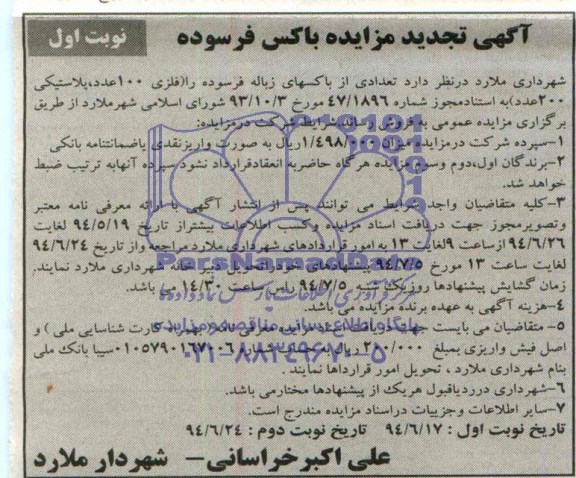 آگهی تجدید مزایده باکس فرسوده
نوبت اول
شهرداری ملارد درنظر دارد تعدادی از باکسهای زباله فرسوده را(فلزی ۱۰۰عدد،پلاستیکی
۲۰۰عدد)به استنادمجوز شماره ۴۷/۱۸۹۶ مورخ ۹۳/۱۰/۳ شورای اسلامی شهرملارد از طریق
برگزاری مزایده عمومی به فروش رساند.شرایط شرکت درمزایده:
۱-سپرده شرکت درمزایده میزان ریال به صورت واریزنقدی یاضمانتنامه بانکی
۲-برندگان اول،دوم وسوم مزایده هرگاه حاضربه انعقادقرارداد نشود،سپرده آنهابه ترتیب ضبط
خواهد شد.
۳-کلیه متقاضیان واجد شرایط می توانند پس از انتشار آگهی با ارائه معرفی نامه معتبر
وتصویرمجوز جهت دریافت اسناد مزایده وکسب اطلاعات بیشتراز تاریخ ۹۴/۵/۱۹ لغایت
۹۴/۶/۲۶ ازساعت ۹لغایت ۱۳ به امور قراردادهای شهرداری ملارد مراجعه واز تاریخ ۹۴/۶/۲۴
لغایت ساعت ۱۳ مورخ ۹۴/۷/۵ پیشنهادهای خودراتحویل دبیرخانه شهرداری ملارد نمایند.
زمان گشایش پیشنهادها روزیک شنبه ۹۴/۷/۵ راس ساعت ۱۴/۳۰ می باشد.
۴-هزینه آگهی به عهده برنده مزایده می باشد.
۵- متقاضیان می بایست جهت دریافت اسناد مزایده معرفی نامه ( کارت شناسایی ملی ) و
اصل فیش واریزی بمبلغ ریال به سیبا بانک ملی
بنام شهرداری ملارد ، تحویل امور قراردادها نمایند .
۶-شهرداری درردیاقبول هریک از پیشنهادها مختارمی باشد.
۷-سایر اطلاعات وجزییات دراسناد مزایده مندرج است.
تاریخ نوبت اول : ۹۴/۶/۱۷ تاریخ نوبت دوم : ۹۴/۶/۲۴
علی اکبرخراسانی- شهردار ملارد
PersNamadData
۰۲۱-۸۸۳۴۹۶۷۰-۵